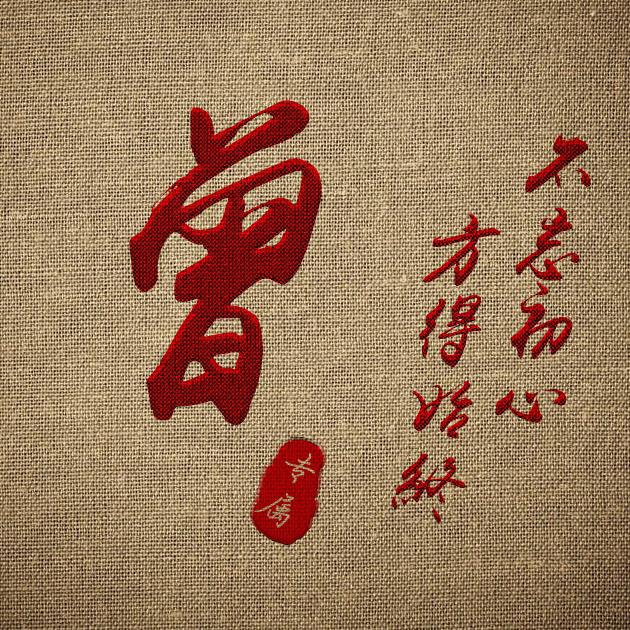 不忘初心
方得始終
曾
专属